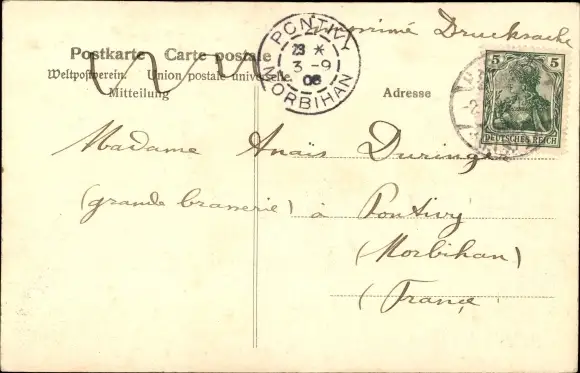 Imprimé Drucksache
Postkarte Carte postale
Weltpostverein. Union postale universelle.
Mitteilung
Adresse
PONTIVY
3 -9
08
MORBIHAN
5 5
DEUTSCHES REICH
Madame Anaïs Duringe
(grande brasserie) à Pontivy
(Morbihan)
(France